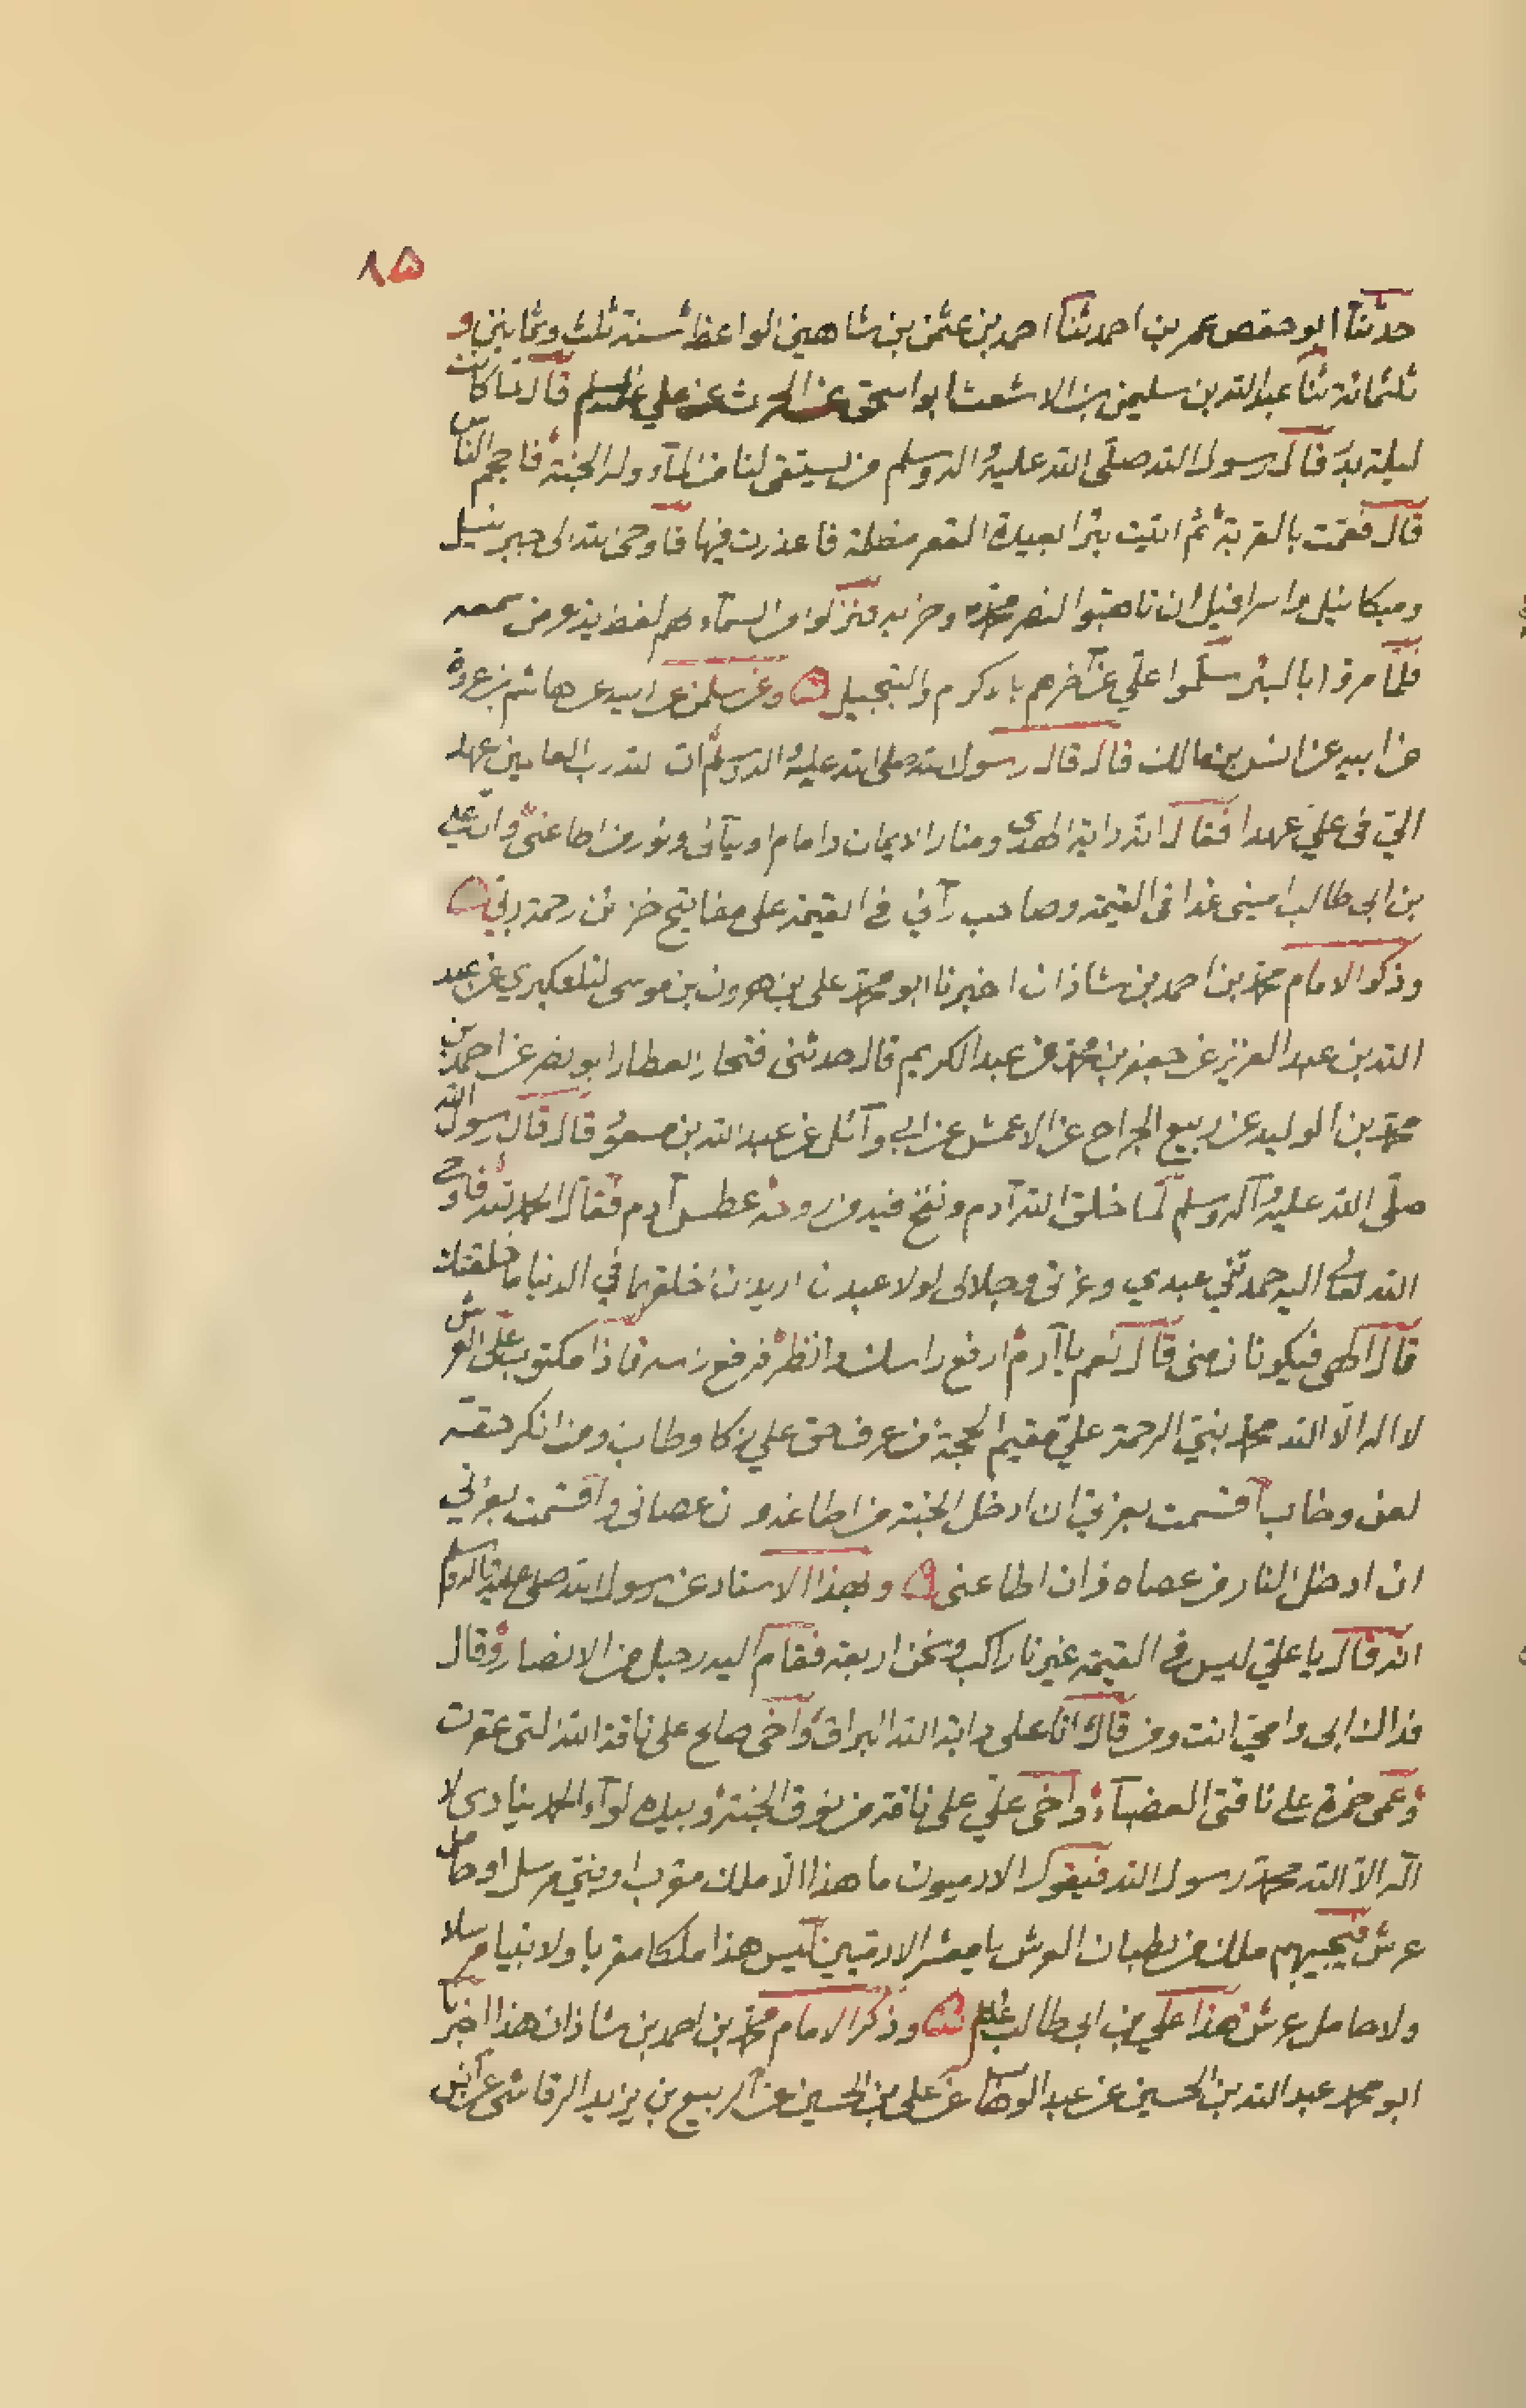 ٨٥
حدثنا ابو حفص عمر بن احمد ثنا احمد بن عثمن بن شاهين الواعظ سنة ثلث وثمانين و
ثلثمائة ثنا عبد الله بن سليمن بن الاشعث ابو اسحق عن الحرث عن علي قال لما كانت
ليلة بدر قال رسول الله صلى الله عليه واله وسلم من يستقى لنا من الماء وله الجنة فاحجم الناس
قال فقمت بالقربة ثم اتيت بئرا بعيدة القعر مظلمة فاعذرت فيها فاوحى الله الى جبرئيل
وميكائيل واسرافيل ان تاهبوا لنصر محمد وحزبه فنزلوا من السماء لهم لغط يذعر من سمعه
فلما مروا بالبئر سلموا علي عن آخرهم باكرم والتجيل وعن سلمن عن ابيه عن هاشم بن عروة
عن ابيه عن انس بن مالك قال قال رسول الله صلى الله عليه واله وسلم ان لله رب العالمين عهد
الي في علي عهدا فقال انه راية الهدى ومنار الايمان وامام اوليائى ونور من اطاعني وان علي
بن ابى طالب اميني غدا فى القيمة وصاحب رآيتي في القيمة على مفاتيح خزئن رحمة ربي
وذكر الامام محمد بن احمد بن شاذان اخبرنا ابو محمد على بن هرون بن موسى لتلعكبري عن عبد
الله بن عبد العزيز عن جعفر بن محمد عن عبد الكريم قال حدثنى فتحار العطار ابو نصر عن احمد بن
محمد بن الوليد عن ربيع الجراح عن الاعمش عن ابي وآئل عن عبد الله بن مسعود قال قال رسول الله
صلى الله عليه وآله وسلم لما خلق الله آدم ونفخ فيه من روحه عطس آدم فقال الحمد لله فاوحى
الله تعالى اليه حمدتني عبدي وعزتى وجلالى لولا عبدان اريد ان اخلقهما في الدنيا ما خلقتك
قال الهى فيكونان منى قال نعم يا آدم ارفع راسك وانظر فرفع راسه فاذا مكتوب على العرش
لا اله الا الله محمد نبي الرحمة علي مقيم الحجة من عرف حق علي زكا وطاب ومن انكر حقه
لعن وخاب اقسمت بعزتي ان ادخل الجنة من اطاعه وان عصانى واقسمت بعزتي
ان ادخل النار من عصاه وان اطاعنى وبهذا الاسناد عن رسول الله صلى عليه واله وسلم
انه قال يا علي ليس في القيمة غيرنا راكب ونحن اربعة فقام اليه رجل من الانصار وقال
فداك ابى وامي انت ومن قال انا على دابة الله البراق وآخى صالح على ناقة الله التى عقرت
وعمى حمزة على ناقتى العضباء وآخى علي على ناقة من نوق الجنة وبيده لواء الحمد ينادى لا
اله الا الله محمد رسول الله فيقول الادميون ما هذا الا ملك مقرب او نبي مرسل او حامل
عرش فيجيبهم ملك من بطنان العرش يا معشر الادميين ليس هذا ملكا مقربا ولا نبيا مرسلا
ولا حامل عرش هذا علي بن ابى طالب وذكر الامام محمد بن احمد بن شاذان هذا اخبرنا
ابو محمد عبد الله بن الحسين عن عبد الوهاب عن على بن الحسين عن الربيع بن يزيد الرقاشى عن انس